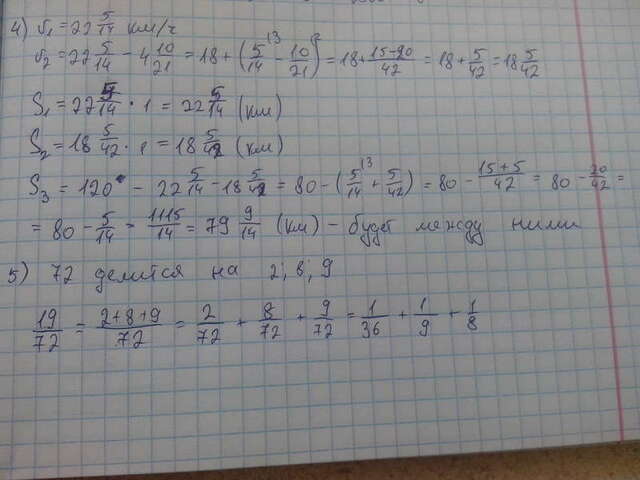 4) v₁ = 22 5/14 км/ч
v₂ = 22 5/14 - 4 10/21 = 18 + (5/14 ¹³ - 10/21 ¹²) = 18 + 15-20/42 = 18 + 5/42 = 18 5/42
S₁ = 22 5/14 · 1 = 22 5/14 (км)
S₂ = 18 5/42 · 1 = 18 5/42 (км)
S₃ = 120 - 22 5/14 - 18 5/42 = 80 - (5/14 ¹³ + 5/42) = 80 - 15+5/42 = 80 - 20/42 =
= 80 - 5/14 = 1115/14 = 79 9/14 (км) - будет между ними
5) 72 делится на 2; 8; 9
19/72 = 2+8+9/72 = 2/72 + 8/72 + 9/72 = 1/36 + 1/9 + 1/8